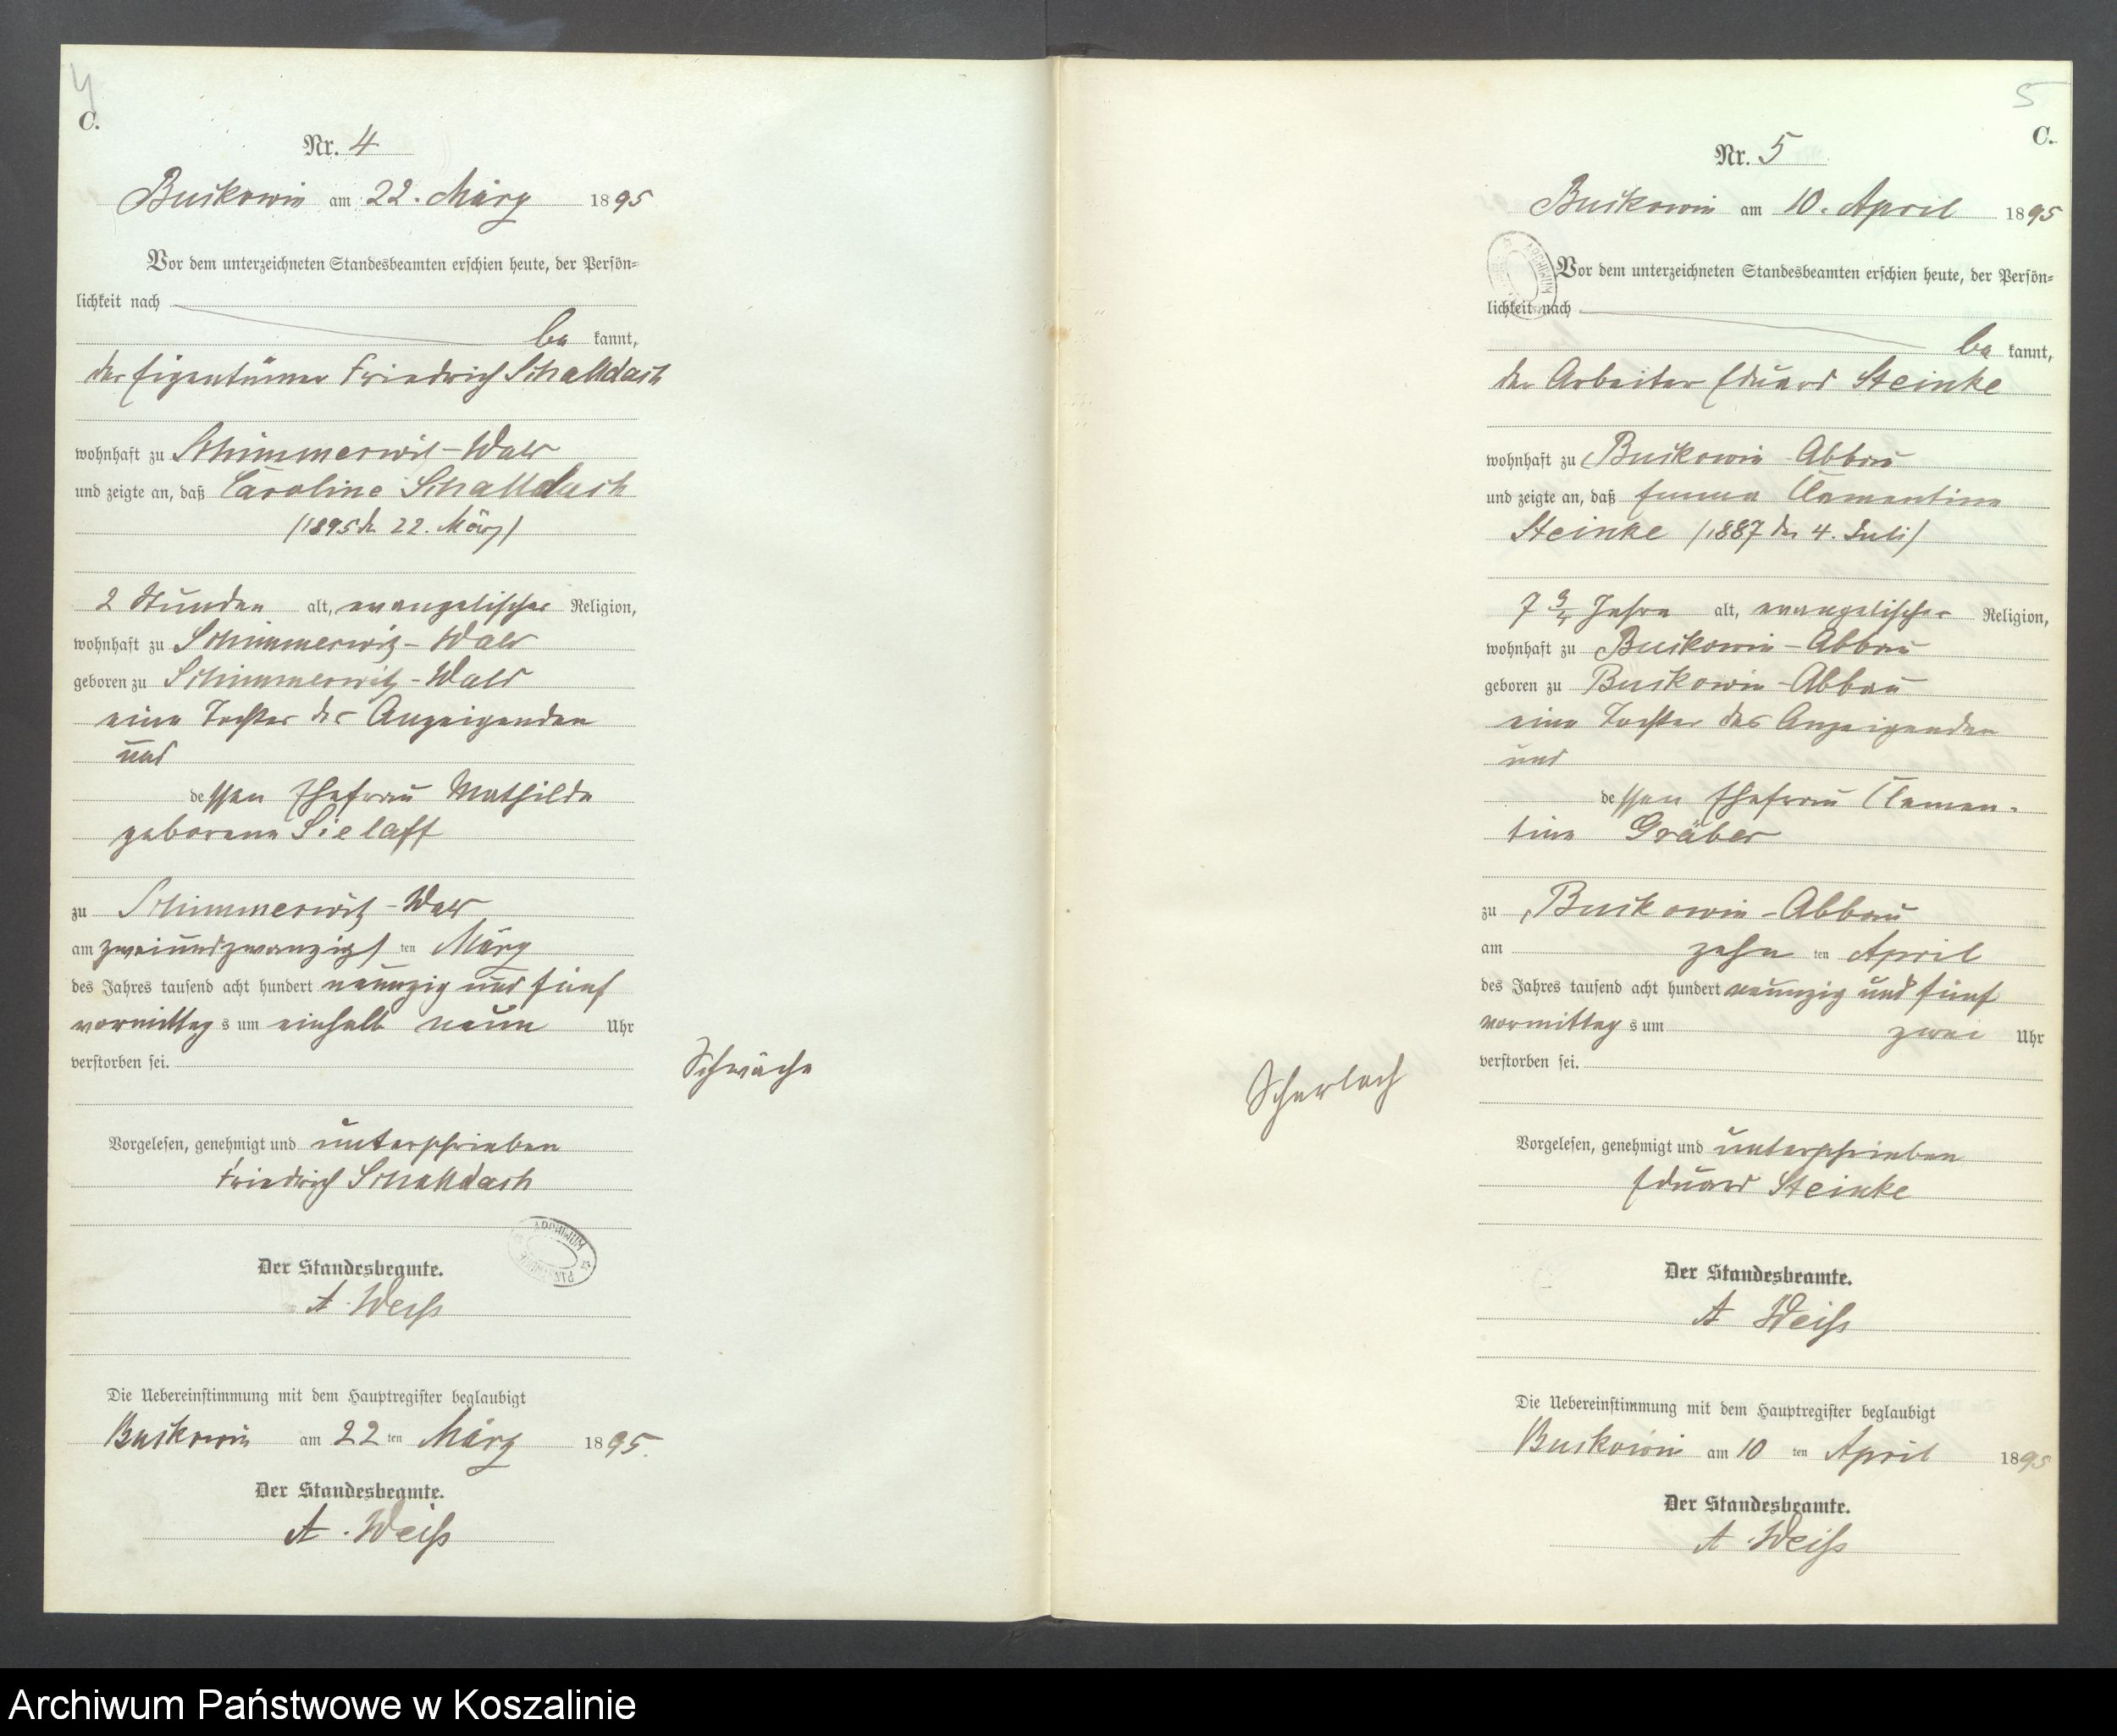 4
C.
Nr. 4
Buckowin am 22. März 1895
Vor dem unterzeichneten Standesbeamten erschien heute, der Persön=
lichkeit nach
be kannt,
der Eigentümer Friedrich Schalldach
wohnhaft zu Schimmerwitz-Wald
und zeigte an, daß Caroline Schalldach
(1895 d. 22. März)
2 Stunden alt, evangelischer Religion,
wohnhaft zu Schimmerwitz-Wald
geboren zu Schimmerwitz-Wald
eine Tochter des Anzeigenden
und
dessen Ehefrau Mathilde
geborene Sielaff
zu Schimmerwitz-Wald
am zweiundzwanzigsten März
des Jahres tausend acht hundert neunzig und fünf
vormittags um einhalb neun Uhr
verstorben sei.
Schwäche
Vorgelesen, genehmigt und unterschrieben
Friedrich Schalldach
ARCHIWUM
Der Standesbeamte.
A. Weiß
Die Uebereinstimmung mit dem Hauptregister beglaubigt
Buckowin am 22ten März 1895.
Der Standesbeamte.
A. Weiß
5
C.
Nr. 5
Buckowin am 10. April 1895
ARCHIWUM
Vor dem unterzeichneten Standesbeamten erschien heute, der Persön=
lichkeit nach
be kannt,
der Arbeiter Eduard Steinke
wohnhaft zu Buckowin-Abbau
und zeigte an, daß Emma Clementine
Steinke (1887 den 4. Juli)
7 3/4 Jahre alt, evangelischer Religion,
wohnhaft zu Buckowin-Abbau
geboren zu Buckowin-Abbau
eine Tochter des Anzeigenden
und
dessen Ehefrau Clemen-
tine Gräber
zu Buckowin-Abbau
am zehnten April
des Jahres tausend acht hundert neunzig und fünf
vormittags um zwei Uhr
verstorben sei.
Scharlach
Vorgelesen, genehmigt und unterschrieben
Eduard Steinke
Der Standesbeamte.
A Weiß
Die Uebereinstimmung mit dem Hauptregister beglaubigt
Buckowin am 10ten April 1895
Der Standesbeamte.
A. Weiß
Archiwum Państwowe w Koszalinie